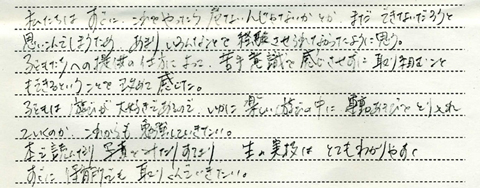 私たちは すぐに、これをやったら 危ないんじゃないか とか まだ できないだろうと
思いこんでしまうため、あまり いろんなことを 経験させられなかったように思う。
子どもたちへの提供の仕方によって 苦手意識を感じさせずに取り組むこと
もできるということを 改めて 感じた。
子どもは 遊びが大好きであるので、いかに 楽しい遊びの中に とり入れ
ていくのか これからも 勉強していきたい。
本を読んだり 写真を みたりするより 生の実技は とてもわかりやすく
すぐに 保育にも 取りくんでいきたい。